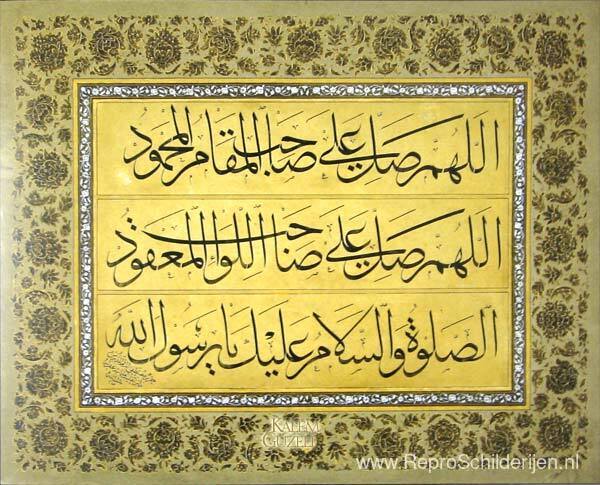 اللهم صل على صاحب المقام المحمود
اللهم صل على صاحب اللواء المعقود
الصلوة والسلام عليك يا رسول الله
KALEM
GÜZELİ
www.ReproSchilderijen.nl